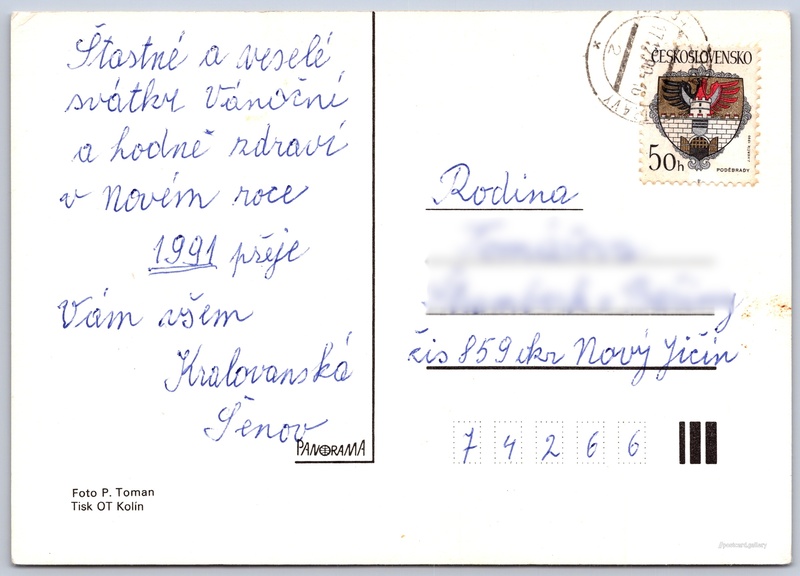 Štastné a veselé
svátky Vánoční
a hodně zdraví
v Novém roce
1991 přeje
Vám všem
Kralovanská
Šenov
PANORAMA
Foto P. Toman
Tisk OT Kolín
ČESKOSLOVENSKO
50h
PODĚBRADY
Rodina
čis 859 okr Nový Jičín
74266
//postcart.gallery